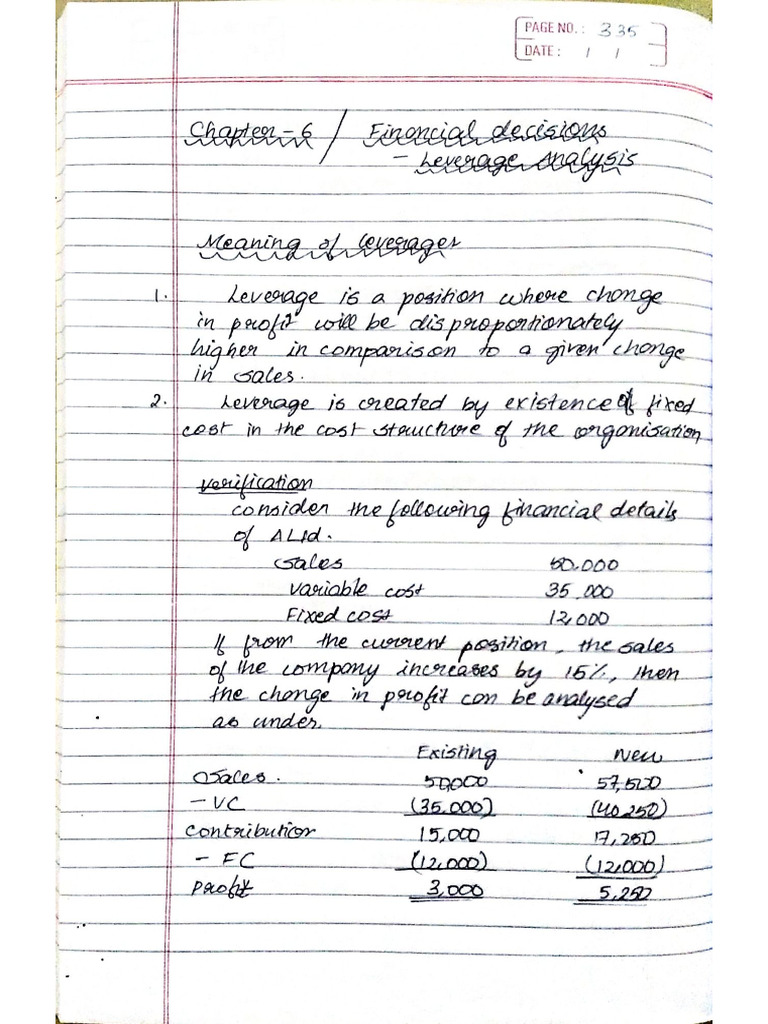 PAGE NO. : 335
DATE : / /
Chapter - 6 / Financial decisions
- Leverage Analysis
Meaning of leverages
1. Leverage is a position where change
in profit will be disproportionately
higher in comparison to a given change
in sales.
2. Leverage is created by existence of fixed
cost in the cost structure of the organisation
verification
consider the following financial details
of A Ltd.
Sales 50,000
Variable cost 35,000
Fixed cost 12,000
If from the current position, the sales
of the company increases by 15%, then
the change in profit can be analysed
as under.
Existing New
Sales. 50,000 57,500
- VC (35,000) (40,250)
Contribution 15,000 17,250
- FC (12,000) (12,000)
Profit 3,000 5,250